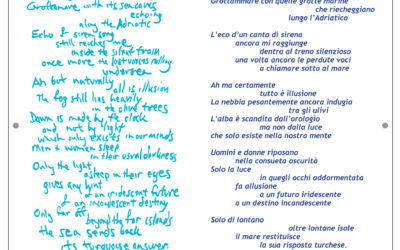 Grottamare with its sea caves
echoing
along the Adriatic
Echo & siren song
still reaches me
inside the silent train
once more the lost voices calling
undersea
Ah but naturally
all is illusion
The fog still lies heavily
in the olive trees
Dawn is made by the clock
and not by light
which only exists in our minds
Men & women sleep
in their usual darkness
Only the light
asleep in their eyes
gives any hint
of an iridescent future
of an incandescent destiny
Only far off
beyond the far islands
the sea sends back
its turquoise answer.
Grottammare con quelle grotte marine
che riecheggiano
lungo l'Adriatico
L'eco d'un canto di sirena
ancora mi raggiunge
dentro al treno silenzioso
una volta ancora le perdute voci
a chiamare sotto al mare
Ah ma certamente
tutto è illusione
La nebbia pesantemente ancora indugia
tra gli ulivi
L'alba è scandita dall'orologio
ma non dalla luce
che solo esiste nella nostra mente
Uomini e donne riposano
nella consueta oscurità
Solo la luce
in quegli occhi addormentata
fa allusione
a un futuro iridescente
a un destino incandescente
Solo di lontano
oltre lontane isole
il mare restituisce
la sua risposta turchese.